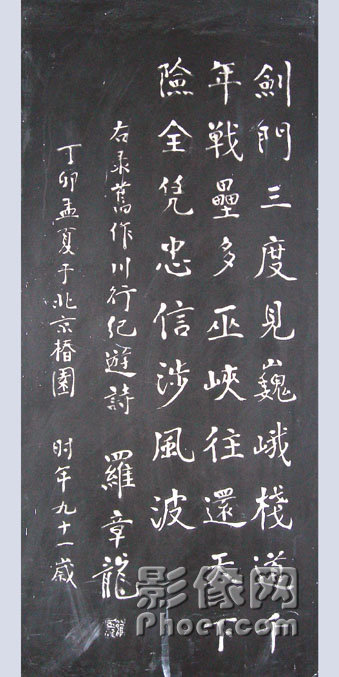 劍門三度見巍峨棧道千
年戰壘多巫峽往還天下
險全凭忠信涉風波
右录舊作川行纪遊詩 羅章龍
丁卯孟夏于北京椿園 时年九十一歲
影像网
Phoer.com